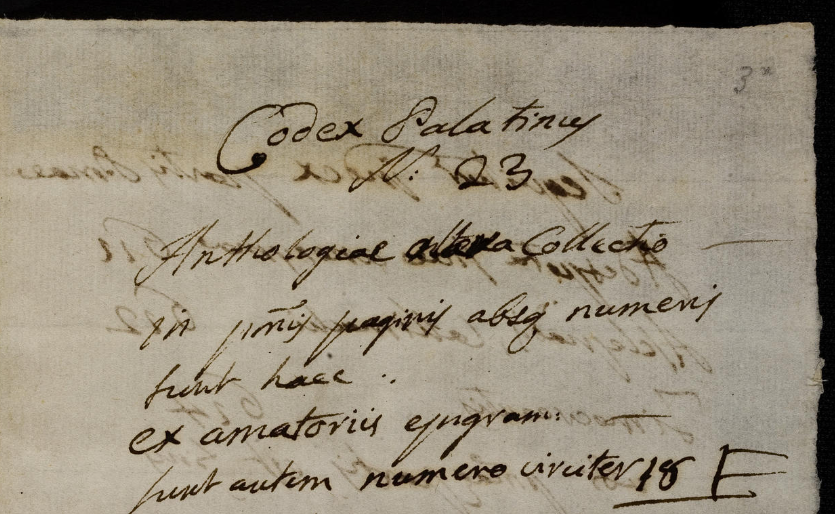 3x
Codex Palatinus
N: 23
Anthologiae altera Collectio
in pnis paginis absq numeris
sunt haec.
ex amatoriis epigram:
sunt autem numero circiter 18